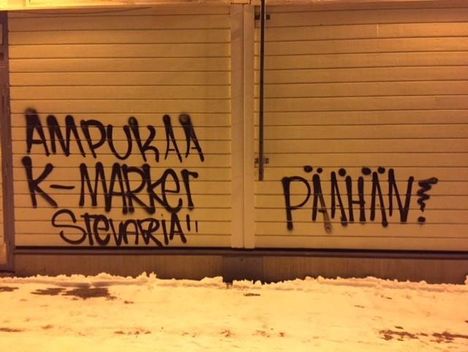 AMPUKAA
K-MARKET
STEVARIA"
PÄÄHÄN!